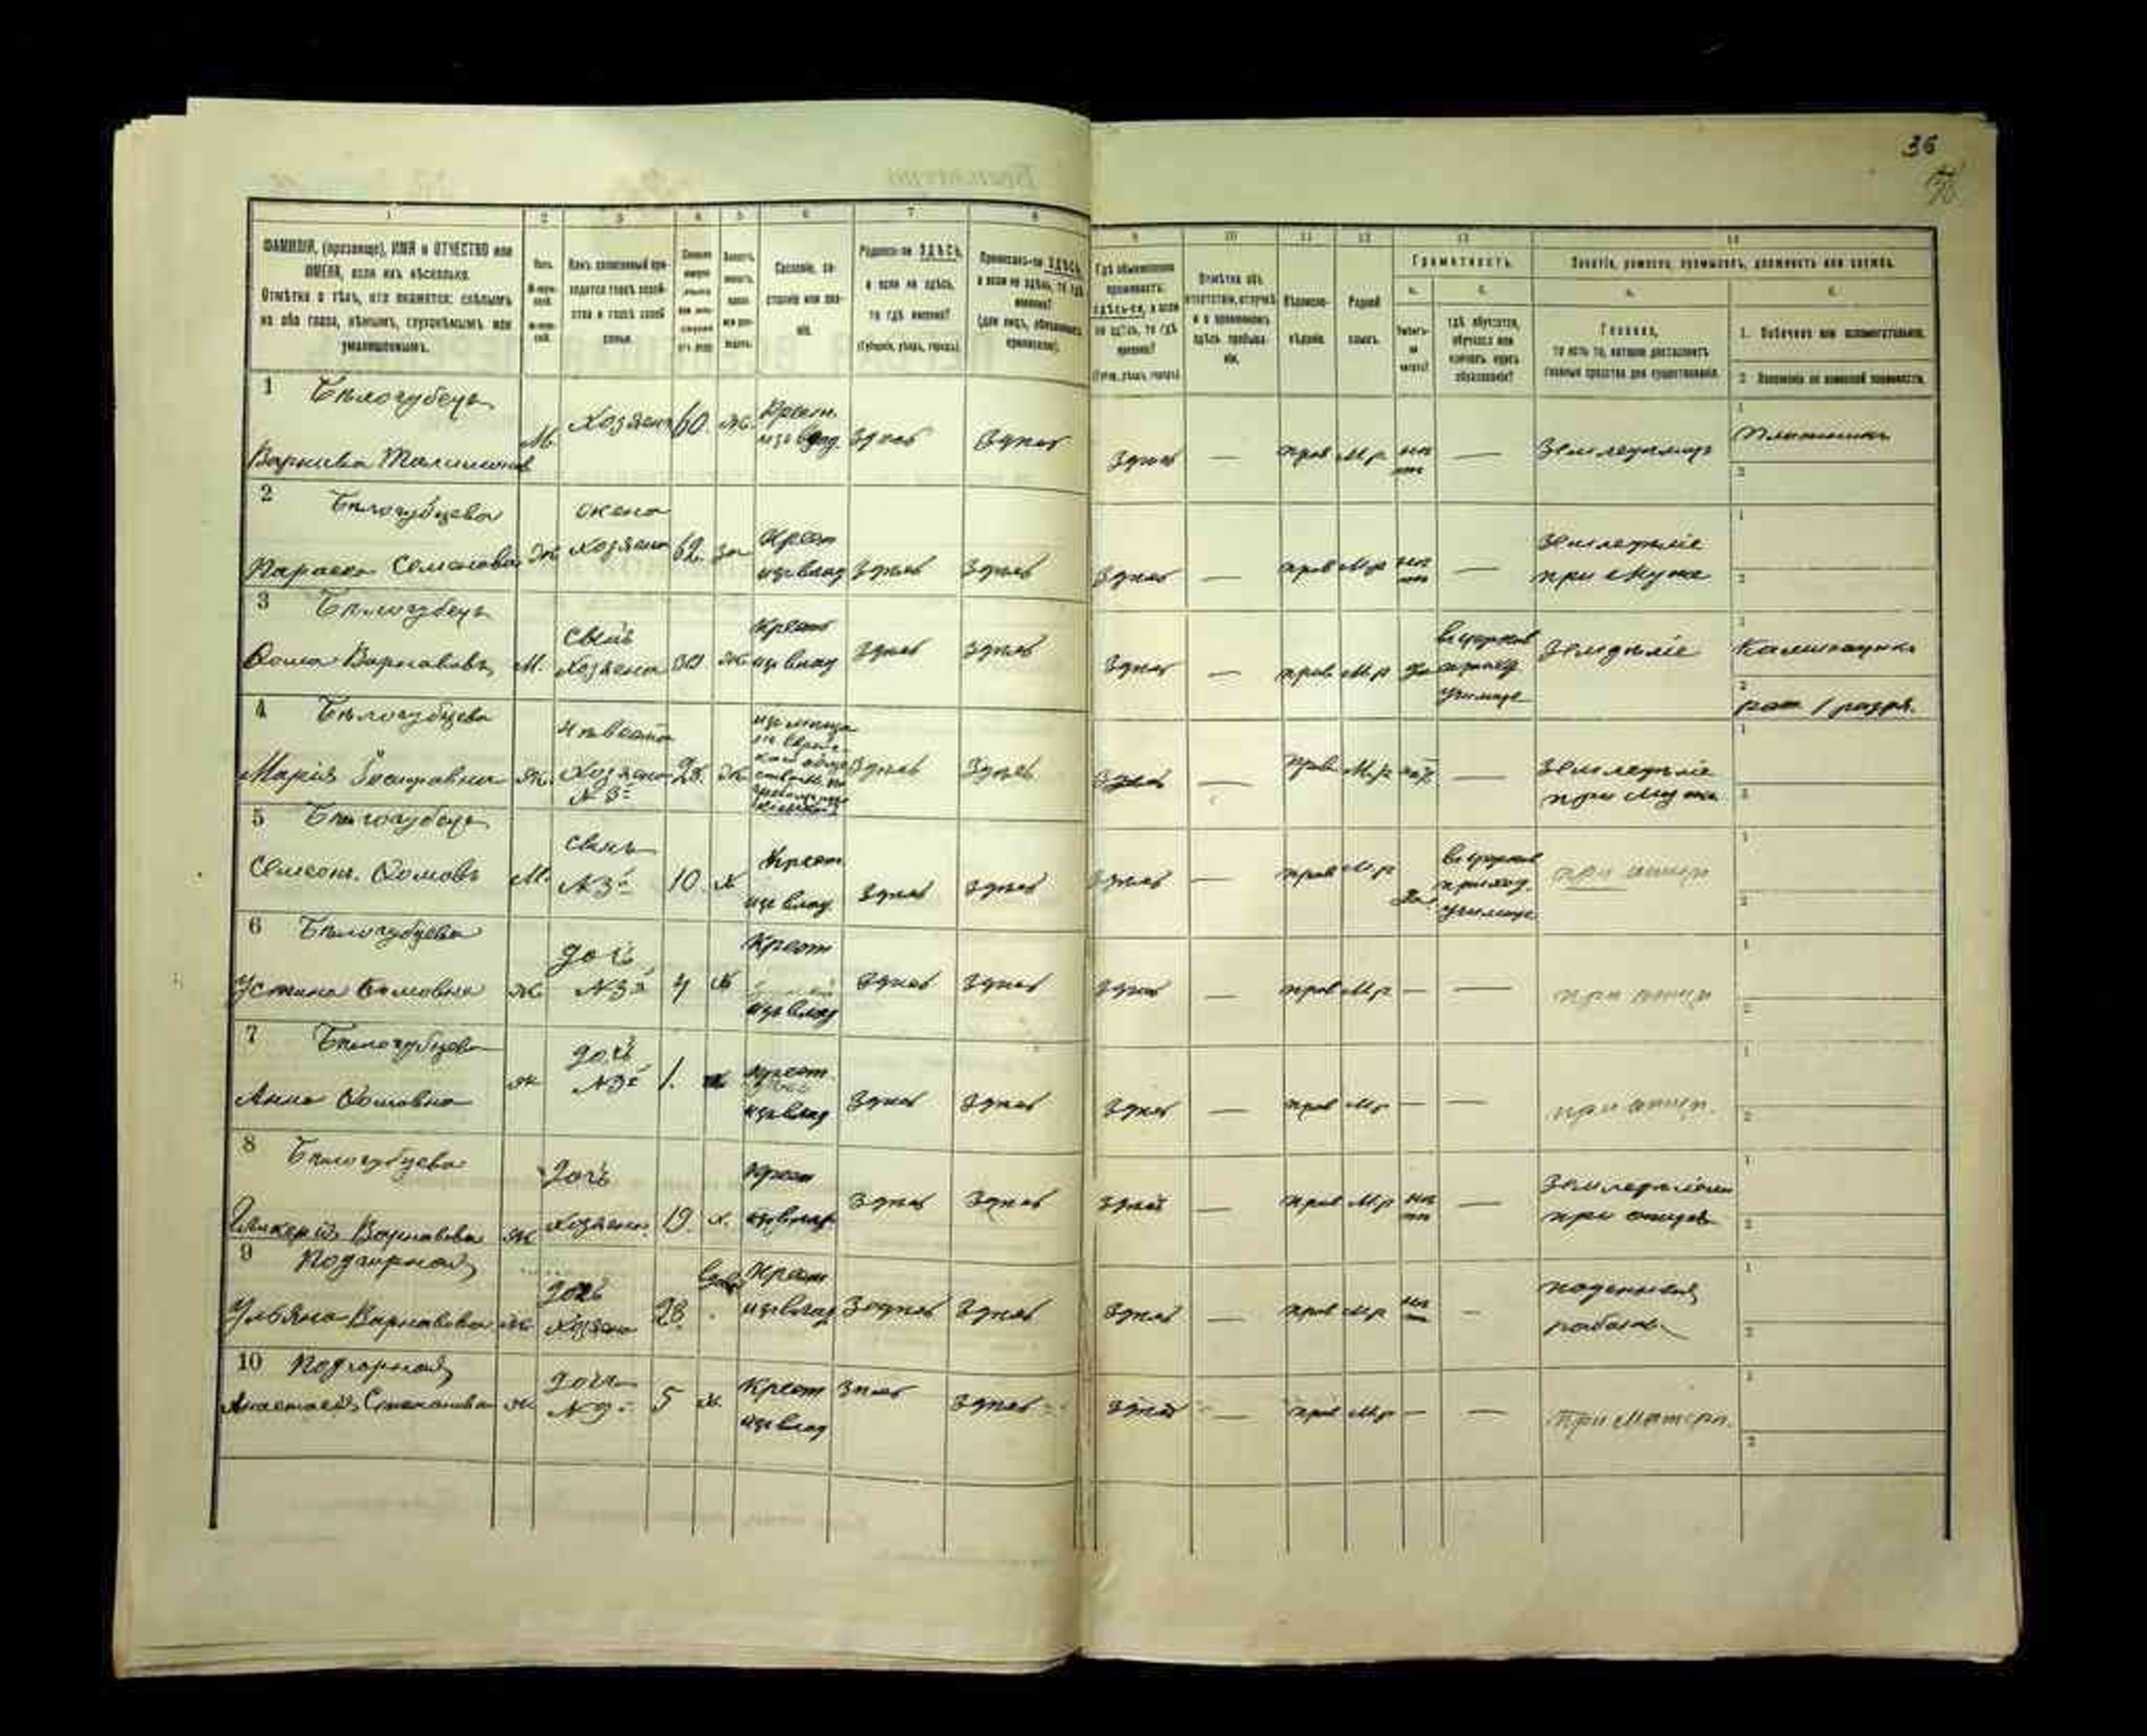 36
1 2 3 4 5 6 7 8
9 10 11 12 13 14
ФАМИЛІЯ, (прозвище), ИМЯ и ОТЧЕСТВО или
ИМЕНА, если ихъ нѣсколько.
Отмѣтка о тѣхъ, кто окажется: слѣпымъ
на оба глаза, нѣмымъ, глухонѣмымъ или
умалишеннымъ.
Полъ.
Сословіе, со-
стояніе или зва-
ніе.
Родился-ли ЗДѢСЬ,
а если не здѣсь,
то гдѣ именно?
(Губернія, уѣздъ, городъ).
Приписанъ-ли ЗДѢСЬ,
а если не здѣсь, то гдѣ
именно?
Гдѣ обыкновенно
проживаетъ:
здѣсь-ли, а если
не здѣсь, то гдѣ
именно?
Отмѣтка объ
отсутствіи, отлучкѣ
и о временномъ
здѣсь пребыва-
ніи.
Вѣроиспо-
вѣданіе.
Родной
языкъ.
Грамотность.
а. б.
Умѣетъ-
ли
читать?
гдѣ обучается,
обучался или
кончилъ курсъ
образованія?
Занятіе, ремесло, промыселъ, должность или служба.
а. б.
Главное,
то есть то, которое доставляетъ
главныя средства для существованія.
1. Побочное или вспомогательное.
2. Положеніе по воинской повинности.
1 Бѣлогубецъ
Варнава М. Хозяинъ 60. Ж. Крест. изъ влад. Здѣсь Здѣсь Здѣсь — прав М.р нѣтъ — Плотникъ
2 Бѣлогубцева жена
Параска Семенова Ж Хозяина 62. за Крест изъ влад Здѣсь Здѣсь Здѣсь — прав М.р нѣтъ — Земледѣліе при мужѣ
3 Бѣлогубецъ
Фома Варнавовъ М. сынъ Хозяина 30 Ж Крест изъ влад Здѣсь Здѣсь Здѣсь — прав М.р да въ церков приход училищѣ
рат. 1 разр.
4 Бѣлогубцева
Марія Ж. невѣста Хозяина №3 Здѣсь Здѣсь Здѣсь — прав М.р — Земледѣліе при мужѣ
5 Бѣлогубецъ
Семенъ Фомовъ М. сынъ №3 10. Х Крест изъ влад Здѣсь Здѣсь Здѣсь — прав М.р да въ церков приход. училищѣ при отцѣ
6 Бѣлогубцева
Устина Фомовна Ж дочь №3 4 Х Крест изъ влад Здѣсь Здѣсь Здѣсь — прав М.р — — при отцѣ
7 Бѣлогубцева
Анна Фомовна Ж дочь №3 1. крест. изъ влад Здѣсь Здѣсь Здѣсь — прав М.р — — при отцѣ.
8 Бѣлогубцева
Гликерія Варнавова Ж дочь Хозяина 19. х. крест изъ влад Здѣсь Здѣсь Здѣсь — прав М.р нѣтъ — при отцѣ
9 Подгорная
Ульяна Варнавова Ж дочь Хозяина 28. Крест изъ влад Здѣсь Здѣсь Здѣсь — прав М.р нѣтъ — поденная работа
10 Подгорная
Анастасія Степанова Ж дочь №9 5 Крест изъ влад Здѣсь Здѣсь Здѣсь — прав М.р — — При матери.